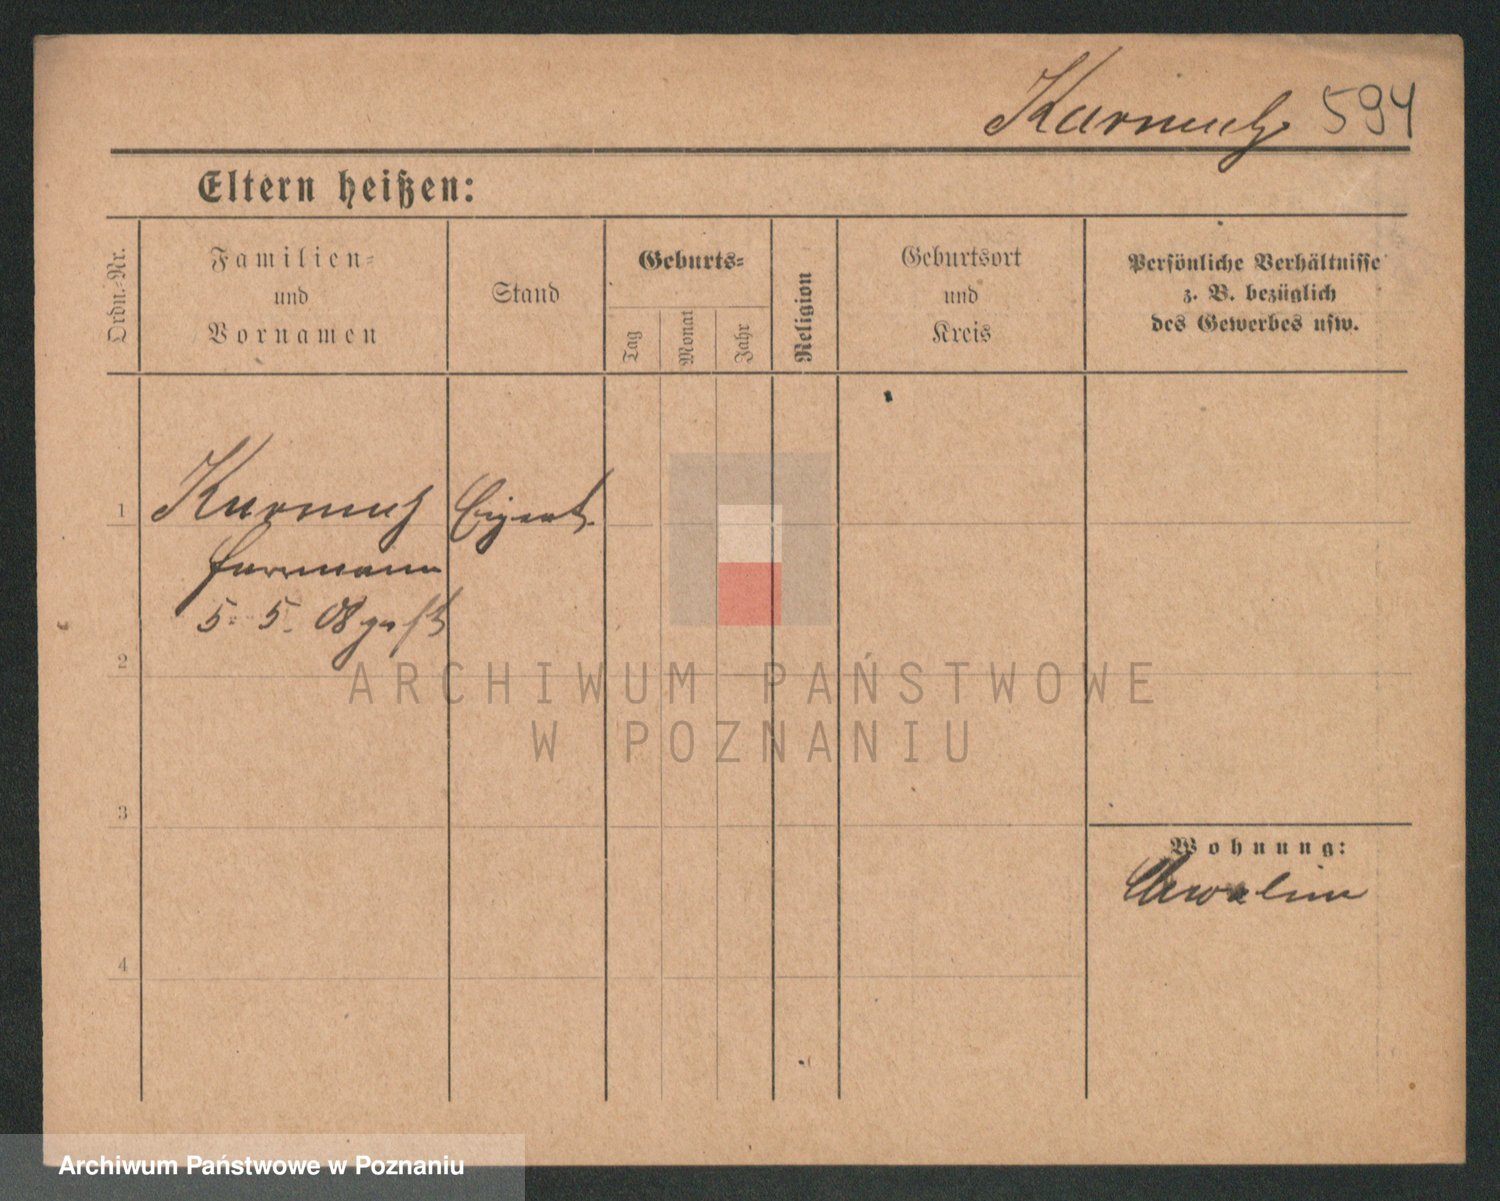 Karmuch 594
Eltern heißen:
Ordn.-Nr.
Familien-
und
Vornamen
Stand
Geburts-
Tag
Monat
Jahr
Religion
Geburtsort
und
Kreis
Persönliche Verhältnisse
z. B. bezüglich
des Gewerbes usw.
1
Eigent.
Herrmann
5. 5. 08
2
ARCHIWUM PAŃSTWOWE
W POZNANIU
3
Wohnung:
4
Archiwum Państwowe w Poznaniu